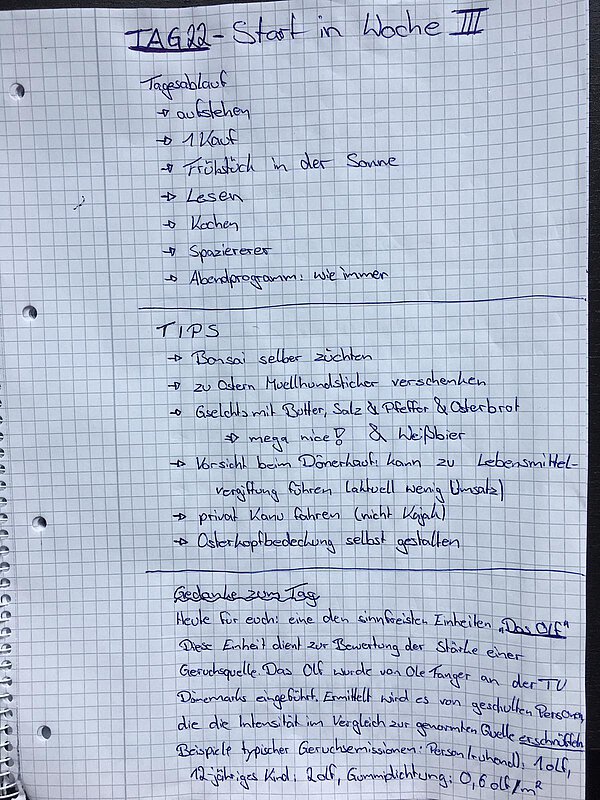 TAG 22 - Start in Woche III
Tagesablauf
→ aufstehen
→ 1 Kauf
→ Frühstück in der Sonne
→ Lesen
→ Kochen
→ Spaziererer
→ Abendprogramm: wie immer
TIPS
→ Bonsai selber züchten
→ zu Ostern Muellhundsticker verschenken
→ Gselchts mit Butter, Salz & Pfeffer & Osterbrot
⇒ mega nice! & Weißbier
→ Vorsicht beim Dönerkauf: kann zu Lebensmittel-
vergiftung führen (aktuell wenig Umsatz)
→ privat Kanu fahren (nicht Kajak)
→ Osterkopfbedeckung selbst gestalten
Gedanke zum Tag
Heute für euch: eine den sinnfreisten Einheiten „Das Olf"
Diese Einheit dient zur Bewertung der Stärke einer
Geruchsquelle. Das Olf wurde von Ole Fanger an der TU
Dänemarks eingeführt. Ermittelt wird es von geschulten Personen,
die die Intensität im Vergleich zur genormten Quelle erschnüffeln
Beispiele typischer Geruchsemissionen: Person (ruhend): 1 olf,
12-jähriges Kind: 2 olf, Gummidichtung: 0,6 olf/m²